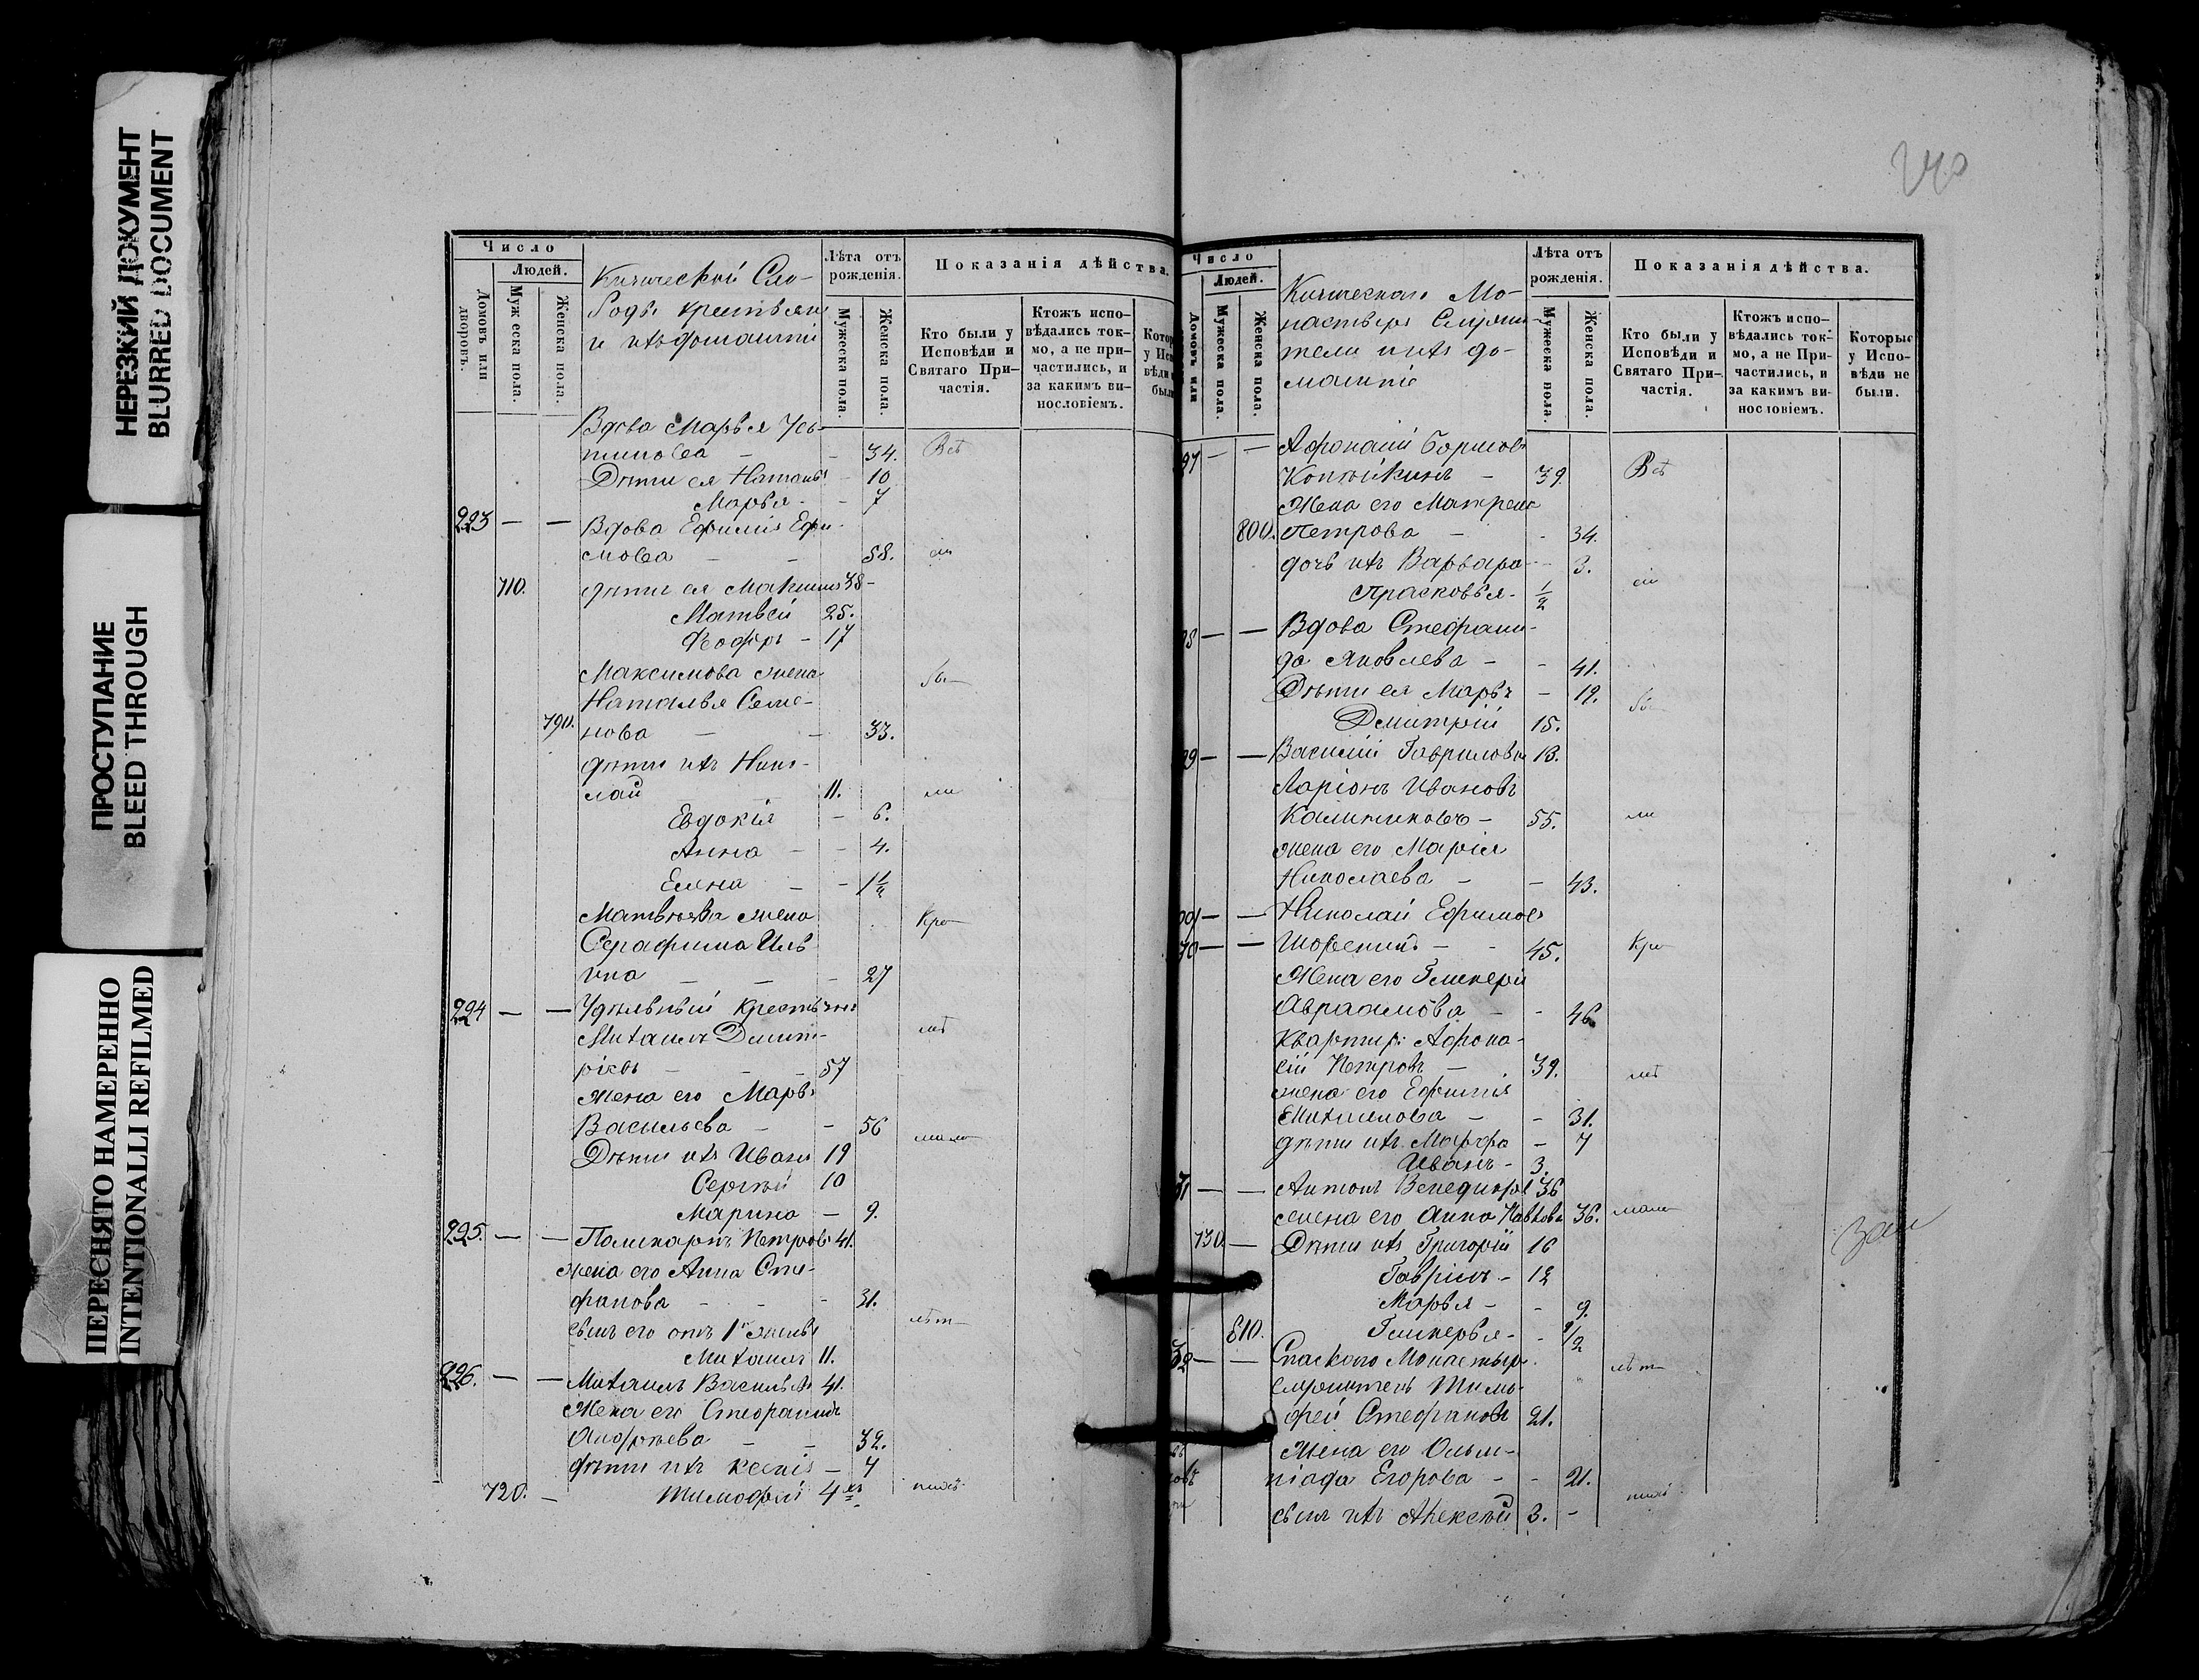 НЕРЕЗКИЙ ДОКУМЕНТ
BLURRED DOCUMENT
ПРОСТУПАНИЕ
BLEED THROUGH
ПЕРЕСНЯТО НАМЕРЕННО
INTENTIONALLI REFILMED
Число
Людей.
Домовъ или дворовъ.
Мужеска пола.
Женска пола.
Кизической Сло-
боды крестьяне
и ихъ домашніе
Лѣта отъ рожденія.
Мужеска пола.
Женска пола.
Показанія дѣйства.
Кто были у Исповѣди и Святаго При-частія.
Ктожъ испо-вѣдались ток-мо, а не при-частились, и за какимъ ви-нословіемъ.
Вдова Марья Усь-
тинова - - 34. Всѣ
Дѣти ея Наталья - 10
Марья - - 7
223 — — Вдова Ефимія Ефи-
мова - - 58. сіи
710. дѣти ея Максимъ 38 -
Матвей 25.
Ѳеодоръ - 17
Максимова жена бы-
Наталья Семе-
790. нова — — 33.
дѣти ихъ Нико-
лай 11. ли
Евдокія - 6.
Анна - - 4.
Елена - - 1½
Матвѣева жена Кро-
Серафима Иль
ина — — - 27
224 — — Удѣльный Крестьянинъ
Михаилъ Дмит- мѣ
ріевъ — - - 57
жена его Марья
Васильева — - 56
мало-
Дѣти ихъ Иванъ 19
Сергѣй 10
Марина — 9.
225. — — Поликарпъ Петровъ 41.
жена его Анна Сте-
фанова - - - 31.
сынъ его отъ 1й жены лѣт-
Михаилъ 11.
226. — — Михаилъ Васильевъ 41.
Жена его Стефанида
Андрѣева — - 32.
дѣти ихъ Ксенія — 7
720. — Тимофей 4хъ нихъ
240
Число
Людей.
Домовъ или
Мужеска пола.
Женска пола.
Кизическаго Мо-
настыря Служи-
тели и ихъ до-
машніе
Лѣта отъ рожденія.
Мужеска пола.
Женска пола.
Показанія дѣйства.
Кто были у Исповѣди и Святаго При-частія.
Ктожъ испо-вѣдались ток-мо, а не При-частились, и за какимъ ви-нословіемъ.
Которые у Испо-вѣди не были.
97 — — Афонасій Борисовъ
Копѣйкинъ - 39. Всѣ
Жена его Матрена
800. Петрова - - 34.
дочь ихъ Варвара - - 3.
сіи
Прасковья - ½
28 — — Вдова Стефани-
да Яковлева - - 41.
Дѣти ея Марья - 19.
бы-
Дмитрій 15.
29 — — Василій Гавриловъ 13.
Ларіонъ Ивановъ
Калининковъ - 55. ли
жена его Марія
Николаева - - 43.
— — Николай Ефимовъ
— — - - 45. Кро-
Жена его Гликерія
Авраамова - - 46.
Квартир: Афона-
сій Петровъ - 39. мѣ
жена его Ефимія
Михаилова - - 31.
дѣти ихъ Марфа - 7
Иванъ - 3.
31 — — Антонъ 36
жена его Анна Павлова 36. мало-
730. — Дѣти ихъ Григорій 16 зам
Гавріилъ - 12
Марья - - 9.
810. Гликерья - - ½
32 — — Спаскаго Монастыря
лѣт-
служитель Тимо-
фей Стефановъ 21.
Жена его Олим-
піада Егорова - - 21.
сынъ ихъ Алексѣй 3. - нихъ